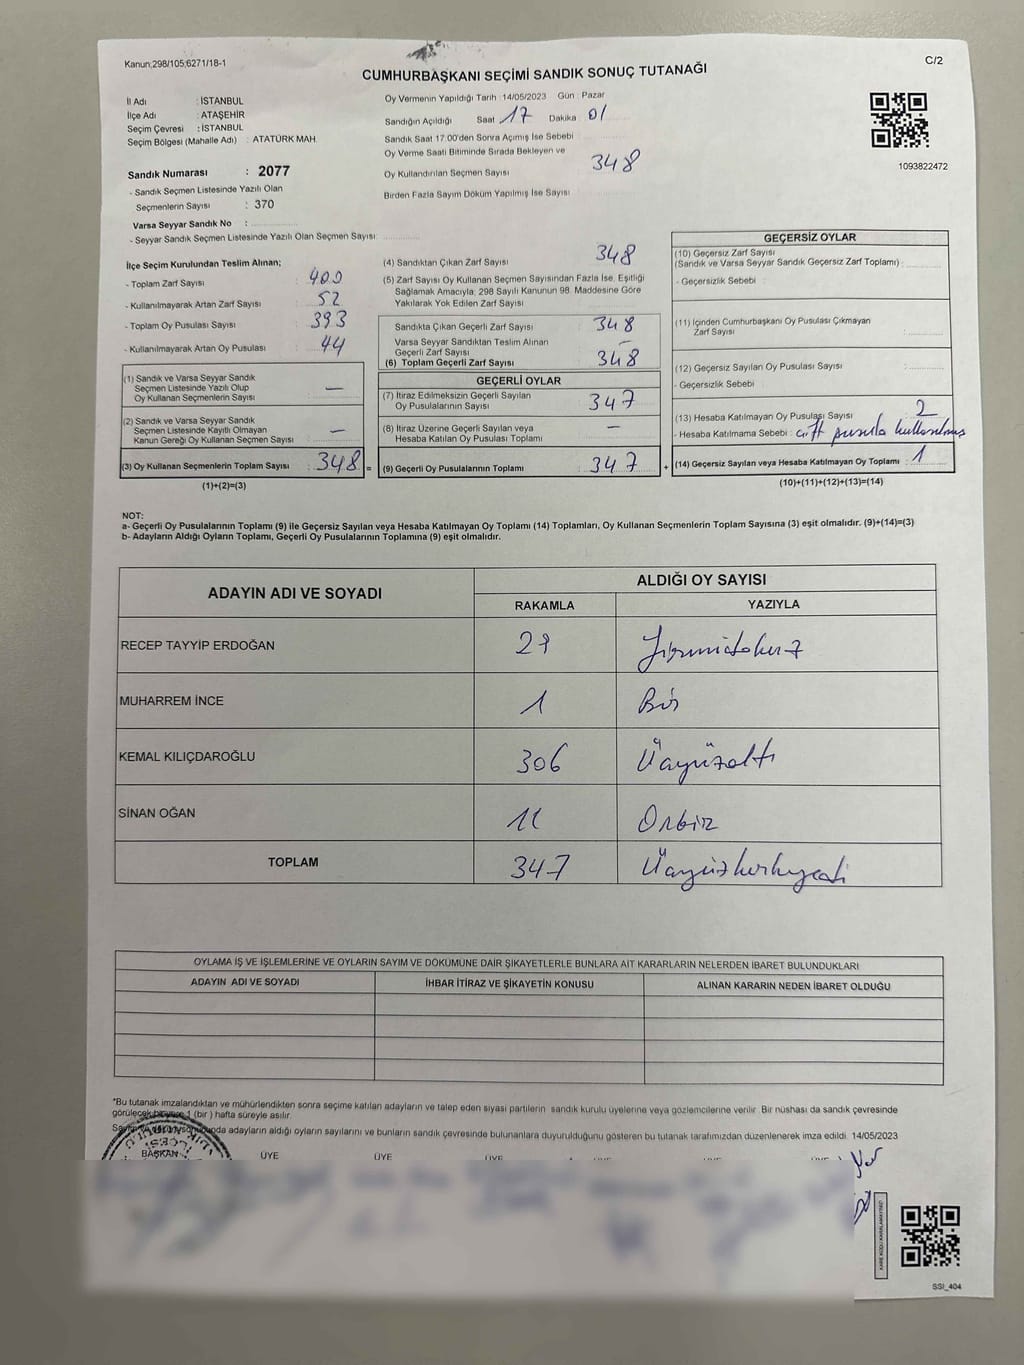 Kanun;298/105;6271/18-1
C/2
CUMHURBAŞKANI SEÇİMİ SANDIK SONUÇ TUTANAĞI
İl Adı : İSTANBUL
İlçe Adı : ATAŞEHİR
Seçim Çevresi : İSTANBUL
Seçim Bölgesi (Mahalle Adı) : ATATÜRK MAH.
Sandık Numarası : 2077
- Sandık Seçmen Listesinde Yazılı Olan
Seçmenlerin Sayısı : 370
Varsa Seyyar Sandık No :
- Seyyar Sandık Seçmen Listesinde Yazılı Olan Seçmen Sayısı:
Oy Vermenin Yapıldığı Tarih : 14/05/2023 Gün : Pazar
Sandığın Açıldığı Saat 17 Dakika 01
Sandık Saat 17.00'den Sonra Açımış İse Sebebi
Oy Verme Saati Bitiminde Sırada Bekleyen ve
Oy Kullandırılan Seçmen Sayısı 348
Birden Fazla Sayım Döküm Yapılmış İse Sayısı
1093822472
İlçe Seçim Kurulundan Teslim Alınan;
- Toplam Zarf Sayısı : 400
- Kullanılmayarak Artan Zarf Sayısı : 52
- Toplam Oy Pusulası Sayısı : 393
- Kullanılmayarak Artan Oy Pusulası : 44
(1) Sandık ve Varsa Seyyar Sandık
Seçmen Listesinde Yazılı Olup
Oy Kullanan Seçmenlerin Sayısı : —
(2) Sandık ve Varsa Seyyar Sandık
Seçmen Listesinde Kayıtlı Olmayan
Kanun Gereği Oy Kullanan Seçmen Sayısı : —
(3) Oy Kullanan Seçmenlerin Toplam Sayısı : 348 =
(1)+(2)=(3)
(4) Sandıktan Çıkan Zarf Sayısı 348
(5) Zarf Sayısı Oy Kullanan Seçmen Sayısından Fazla İse, Eşitliği
Sağlamak Amacıyla, 298 Sayılı Kanunun 98. Maddesine Göre
Yakılarak Yok Edilen Zarf Sayısı
Sandıkta Çıkan Geçerli Zarf Sayısı : 348
Varsa Seyyar Sandıktan Teslim Alınan
Geçerli Zarf Sayısı : –
(6) Toplam Geçerli Zarf Sayısı : 348
GEÇERLİ OYLAR
(7) İtiraz Edilmeksizin Geçerli Sayılan
Oy Pusulalarının Sayısı : 347
(8) İtiraz Üzerine Geçerli Sayılan veya
Hesaba Katılan Oy Pusulası Toplamı : —
(9) Geçerli Oy Pusulalarının Toplamı : 347 +
GEÇERSİZ OYLAR
(10) Geçersiz Zarf Sayısı
(Sandık ve Varsa Seyyar Sandık Geçersiz Zarf Toplamı) :
- Geçersizlik Sebebi :
(11) İçinden Cumhurbaşkanı Oy Pusulası Çıkmayan
Zarf Sayısı :
(12) Geçersiz Sayılan Oy Pusulası Sayısı :
- Geçersizlik Sebebi :
(13) Hesaba Katılmayan Oy Pusulası Sayısı : 2
- Hesaba Katılmama Sebebi : çift pusula kullanılmış
(14) Geçersiz Sayılan veya Hesaba Katılmayan Oy Toplamı : 1
(10)+(11)+(12)+(13)=(14)
NOT:
a- Geçerli Oy Pusulalarının Toplamı (9) ile Geçersiz Sayılan veya Hesaba Katılmayan Oy Toplamı (14) Toplamları, Oy Kullanan Seçmenlerin Toplam Sayısına (3) eşit olmalıdır. (9)+(14)=(3)
b- Adayların Aldığı Oyların Toplamı, Geçerli Oy Pusulalarının Toplamına (9) eşit olmalıdır.
ADAYIN ADI VE SOYADI ALDIĞI OY SAYISI
RAKAMLA YAZIYLA
RECEP TAYYİP ERDOĞAN 29 Yirmidokuz
MUHARREM İNCE 1 Bir
KEMAL KILIÇDAROĞLU 306 Üçyüzaltı
SİNAN OĞAN 11 Onbir
TOPLAM 347 Üçyüzkırkyedi
OYLAMA İŞ VE İŞLEMLERİNE VE OYLARIN SAYIM VE DÖKÜMÜNE DAİR ŞİKAYETLERLE BUNLARA AİT KARARLARIN NELERDEN İBARET BULUNDUKLARI
ADAYIN ADI VE SOYADI İHBAR İTİRAZ VE ŞİKAYETİN KONUSU ALINAN KARARIN NEDEN İBARET OLDUĞU
*Bu tutanak imzalandıktan ve mühürlendikten sonra seçime katılan adayların ve talep eden siyasi partilerin sandık kurulu üyelerine veya gözlemcilerine verilir. Bir nüshası da sandık çevresinde
görülecek bir yere 1 (bir) hafta süreyle asılır.
adayların aldığı oyların sayılarını ve bunların sandık çevresinde bulunanlara duyurulduğunu gösteren bu tutanak tarafımızdan düzenlenerek imza edildi. 14/05/2023
BAŞKAN ÜYE ÜYE ÜYE
SSİ_404